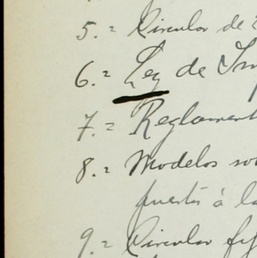 5.ª Circular de
6.ª Ley de Im
7.ª Reglament
8.ª Modelos so
puesto à la
9.ª Circular